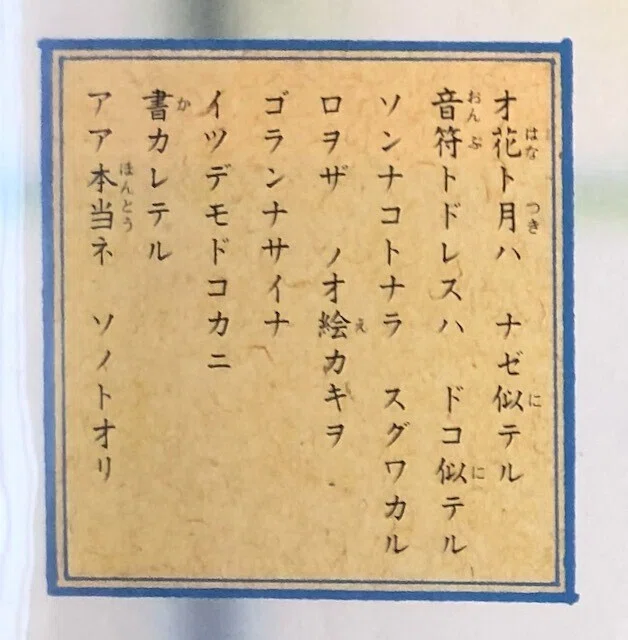 オ花ト月ハ　ナゼ似テル
音符トドレスハ　ドコ似テル
ソンナコトナラ　スグワカル
ロヲザ　ノオ絵カキヲ
ゴランナサイナ
イツデモドコカニ
書カレテル
アア本当ネ　ソノトオリ